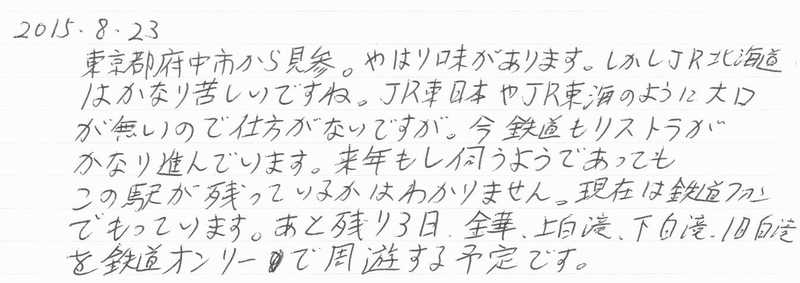 2015.8.23
東京都府中市から見参。やはり味があります。しかしJR北海道
はかなり苦しいですね。JR東日本やJR東海のように大口
が無いので仕方がないですが。今鉄道もリストラが
かなり進んでいます。来年もし伺うようであっても
この駅が残っているかはわかりません。現在は鉄道ファン
でもっています。あと残り3日、金華、上白滝、下白滝、旧白滝
を鉄道オンリーで周遊する予定です。